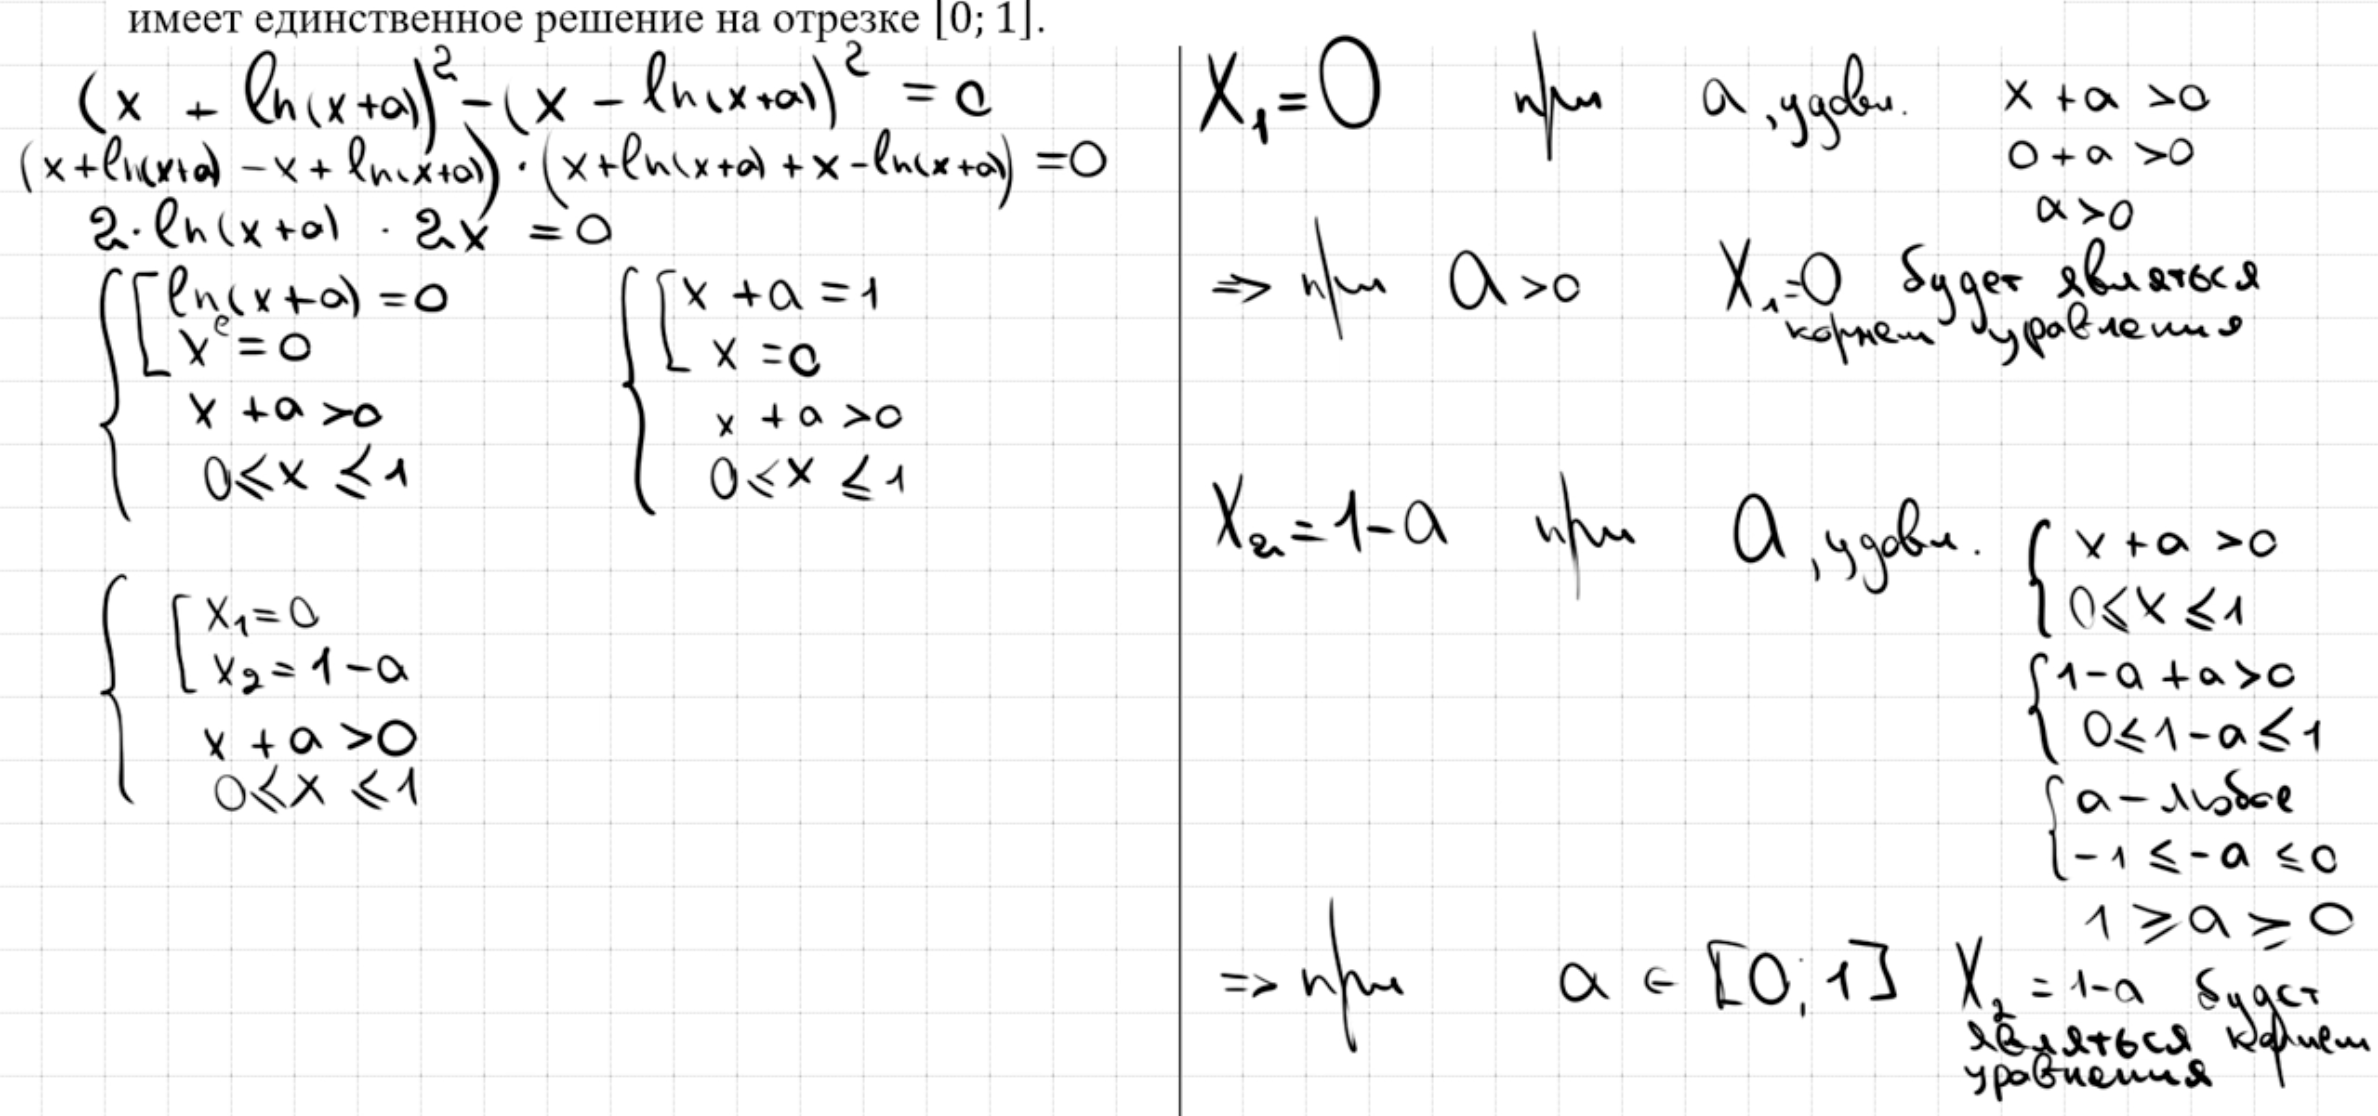 имеет единственное решение на отрезке [0; 1].
(x + ln(x+a))² - (x - ln(x+a))² = 0
(x+ln(x+a) - x + ln(x+a)) · (x+ln(x+a) + x - ln(x+a)) = 0
2 · ln(x+a) · 2x = 0
{ [ ln(x+a) = 0
x = 0
x + a > 0
0 ≤ x ≤ 1
{ [ x + a = 1
x = 0
x + a > 0
0 ≤ x ≤ 1
{ [ x₁ = 0
x₂ = 1 - a
x + a > 0
0 ≤ x ≤ 1
X₁ = 0 при a, удовл. x + a > 0
0 + a > 0
a > 0
=> при a > 0 X₁=0 будет являться
корнем уравнения
X₂ = 1 - a при a, удовл. { x + a > 0
0 ≤ x ≤ 1
{ 1 - a + a > 0
0 ≤ 1 - a ≤ 1
{ a - любое
-1 ≤ -a ≤ 0
1 ≥ a ≥ 0
=> при a ∈ [0; 1] X₂ = 1-a будет
являться корнем
уравнения